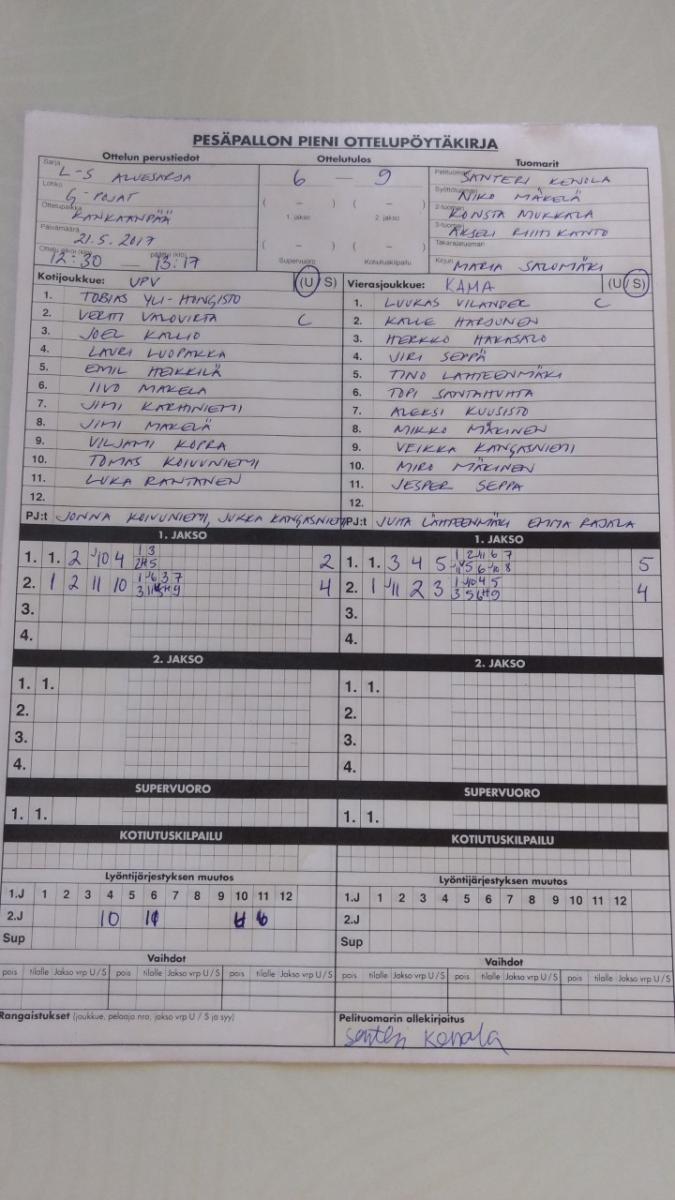 PESÄPALLON PIENI OTTELUPÖYTÄKIRJA
Ottelun perustiedot Ottelutulos Tuomarit
Sarja L-S ALUESARJA
Lohko G-POJAT
Ottelupaikka KANKAANPÄÄ
Päivämäärä 21.5.2017
12:30 — 13:17
6 — 9
( – ) ( – )
1. jakso 2. jakso
( – ) ( – )
Supervuoro Kotiutuskilpailu
Pelituomari SANTERI KENOLA
Syöttötuomari NIKO MÄKELÄ
2-tuomari KONSTA MUKKALA
3-tuomari AKSELI RIIHIKANTO
Takarajatuomari
Kirjuri MARIA SALOMÄKI
Kotijoukkue: UPV (U/S)
1. TOBIAS YLI-HONGISTO
2. VERTTI VALOVIRTA C
3. JOEL KALLIO
4. LAURI LUOPAKKA
5. EMIL HEIKKILÄ
6. IIVO MAKELA
7. JIMI KARHINIEMI
8. JIMI MAKELÄ
9. VILJAMI KOPRA
10. TOMAS KOIVUNIEMI
11. LUKA RANTANEN
12.
PJ:t JONNA KOIVUNIEMI, JUKKA KANGASNIEMI
Vierasjoukkue: KAMA (U/S)
1. LUUKAS VILANDER C
2. KALLE HARJUNEN
3. HERKKO HAKASALO
4. JIRI SEPPÄ
5. TINO LÄHTEENMÄKI
6. TOPI SANTAHUHTA
7. ALEKSI KUUSISTO
8. MIKKO MÄKINEN
9. VEIKKA KANGASNIEMI
10. MIRO MÄKINEN
11. JESPER SEPPA
12.
PJ:t JUHA LÄHTEENMÄKI EMMA RAJALA
1. JAKSO 1. JAKSO
1. 1. 2 J10 4 2
2. 1 2 11 10 4
3.
4.
1. 1. 3 4 5 5
2. 1 J11 2 3 4
3.
4.
2. JAKSO 2. JAKSO
1. 1. 1. 1.
2. 2.
3. 3.
4. 4.
SUPERVUORO SUPERVUORO
1. 1. 1. 1.
KOTIUTUSKILPAILU KOTIUTUSKILPAILU
Lyöntijärjestyksen muutos Lyöntijärjestyksen muutos
1.J 1 2 3 4 5 6 7 8 9 10 11 12 1.J 1 2 3 4 5 6 7 8 9 10 11 12
2.J 10 11 4 6 2.J
Sup Sup
Vaihdot Vaihdot
pois tilalle Jakso vrp U / S pois tilalle Jakso vrp U / S pois tilalle Jakso vrp U / S pois tilalle Jakso vrp U / S pois tilalle Jakso vrp U / S
Rangaistukset (joukkue, pelaaja nro, jakso vrp U / S ja syy)
Pelituomarin allekirjoitus
Santeri Kenola